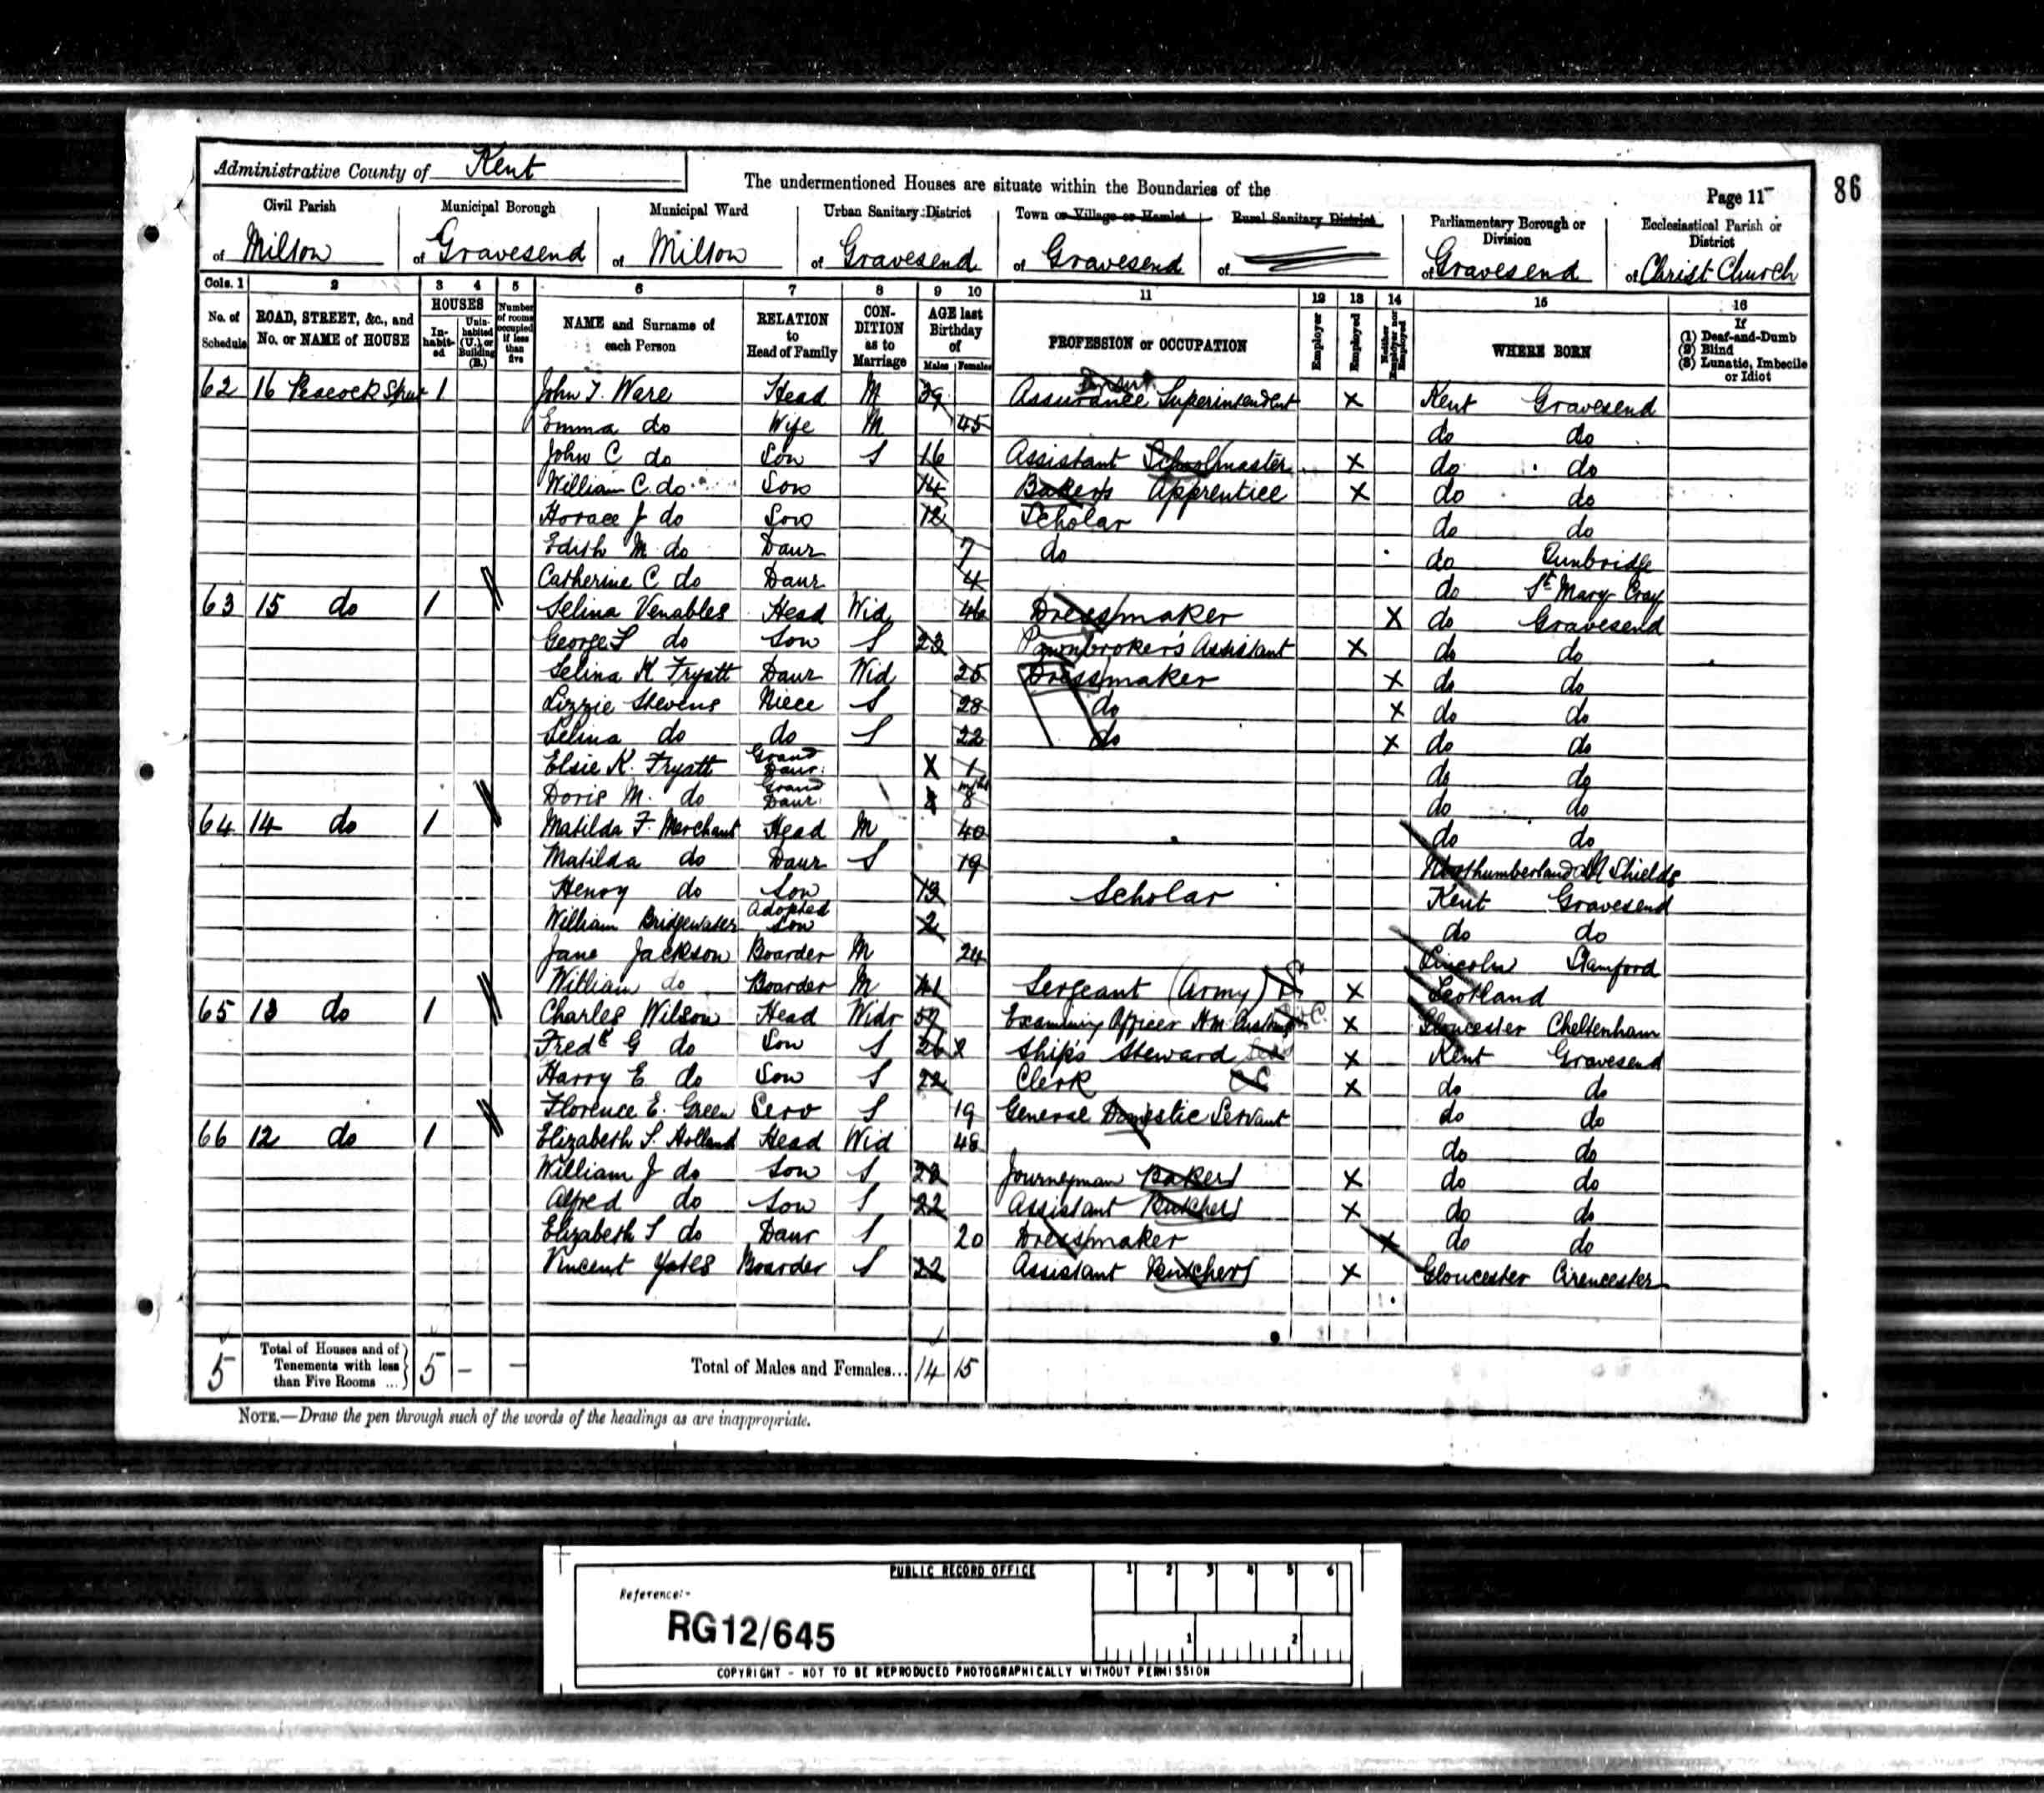 Administrative County of Kent
The undermentioned Houses are situate within the Boundaries of the
Page 11
86
Civil Parish Municipal Borough Municipal Ward Urban Sanitary District Town or Village or Hamlet Rural Sanitary District Parliamentary Borough or Division Ecclesiastical Parish or District
of Milton of Gravesend of Milton of Gravesend of Gravesend of of Gravesend of Christ Church
Cols. 1 2 3 4 5 6 7 8 9 10 11 12 13 14 15 16
No. of Schedule ROAD, STREET, &c., and No. or NAME of HOUSE HOUSES Inhabited Uninhabited (U.) or Building (B.) Number of rooms occupied if less than five NAME and Surname of each Person RELATION to Head of Family CONDITION as to Marriage AGE last Birthday of Males Females PROFESSION or OCCUPATION Employer Employed Neither Employer nor Employed WHERE BORN If (1) Deaf-and-Dumb (2) Blind (3) Lunatic, Imbecile or Idiot
62 16 Peacock Street 1 John T. Ware Head M 39 Assurance Superintendent X Kent Gravesend
Emma do Wife M 45 do do
John C do Son S 16 Assistant Schoolmaster X do do
William C. do Son 14 Baker's Apprentice X do do
Horace J do Son 12 Scholar do do
Edith M do Daur 7 do do Tunbridge
Catherine C do Daur 4 do St Mary Cray
63 15 do 1 Selina Venables Head Wid 46 Dressmaker X do Gravesend
George S do Son S 23 Pawnbroker's Assistant X do do
Selina K Fryatt Daur Wid 25 Dressmaker X do do
Lizzie Stevens Niece S 28 do X do do
Selina do do S 22 do X do do
Elsie K. Fryatt Grand Daur. X 1 do do
Doris M. do Grand Daur. 8 mths do do
64 14 do 1 Matilda F. Merchant Head M 40 do do
Matilda do Daur S 19 Northumberland N Shields
Henry do Son 13 Scholar Kent Gravesend
William Bridgewater Adopted Son 2 do do
Jane Jackson Boarder M 24 Lincoln Stamford
William do Boarder M 41 Sergeant (Army) X Scotland
65 13 do 1 Charles Wilson Head Widr 59 Examining Officer H.M. Customs X Gloucester Cheltenham
Fredk G do Son S 26 X Ship's Steward X Kent Gravesend
Harry E. do Son S 22 Clerk X do do
Florence E. Green Serv S 19 General Domestic Servant do do
66 12 do 1 Elizabeth S. Holland Head Wid 48 do do
William J do Son S 23 Journeyman Baker X do do
Alfred do Son S 22 Assistant Butcher X do do
Elizabeth S do Daur S 20 Dressmaker X do do
Vincent Yates Boarder S 22 Assistant Butcher X Gloucester Cirencester
5 Total of Houses and of Tenements with less than Five Rooms ... 5 - - Total of Males and Females... 14 15
NOTE.—Draw the pen through such of the words of the headings as are inappropriate.
PUBLIC RECORD OFFICE
1 2 3 4 5 6
Reference:-
RG12/645
1 2
COPYRIGHT - NOT TO BE REPRODUCED PHOTOGRAPHICALLY WITHOUT PERMISSION